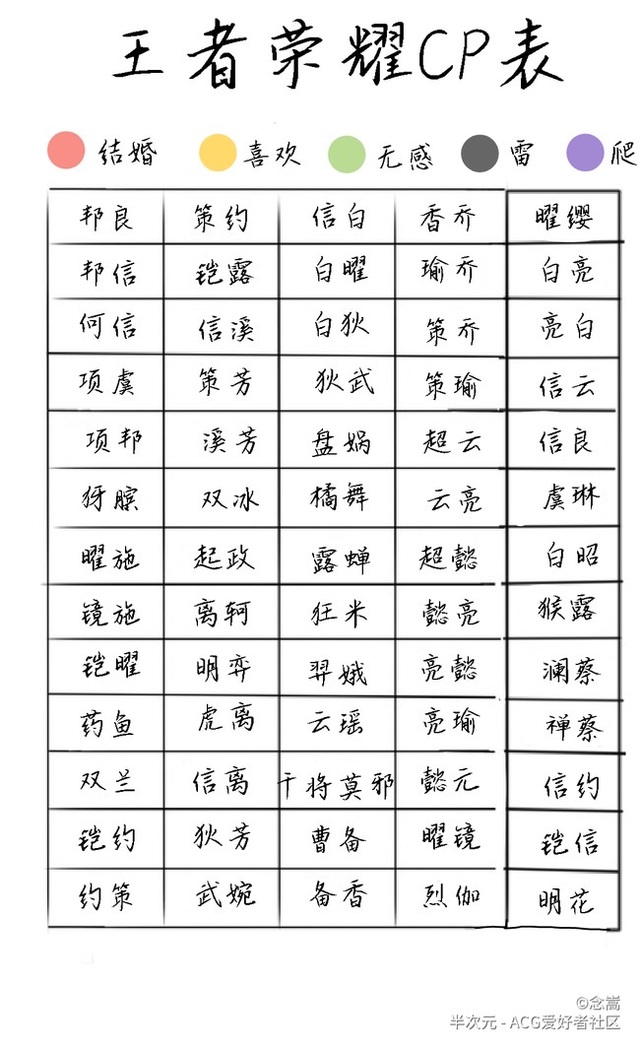 王者荣耀CP表
结婚 喜欢 无感 雷 爬
邦良 策约 信白 香乔 曜缨
邦信 铠露 白曜 瑜乔 白亮
何信 信溪 白狄 策乔 亮白
项虞 策芳 狄武 策瑜 信云
项邦 溪芳 盘娲 超云 信良
犽膑 双冰 橘舞 云亮 虞琳
曜施 起政 露蝉 超懿 白昭
镜施 离轲 狂米 懿亮 猴露
铠曜 明弈 羿娥 亮懿 澜蔡
药鱼 虎离 云瑶 亮瑜 禅蔡
双兰 信离 干将莫邪 懿元 信约
铠约 狄芳 曹备 曜镜 铠信
约策 武婉 备香 烈伽 明花
©念嵩
半次元 - ACG爱好者社区